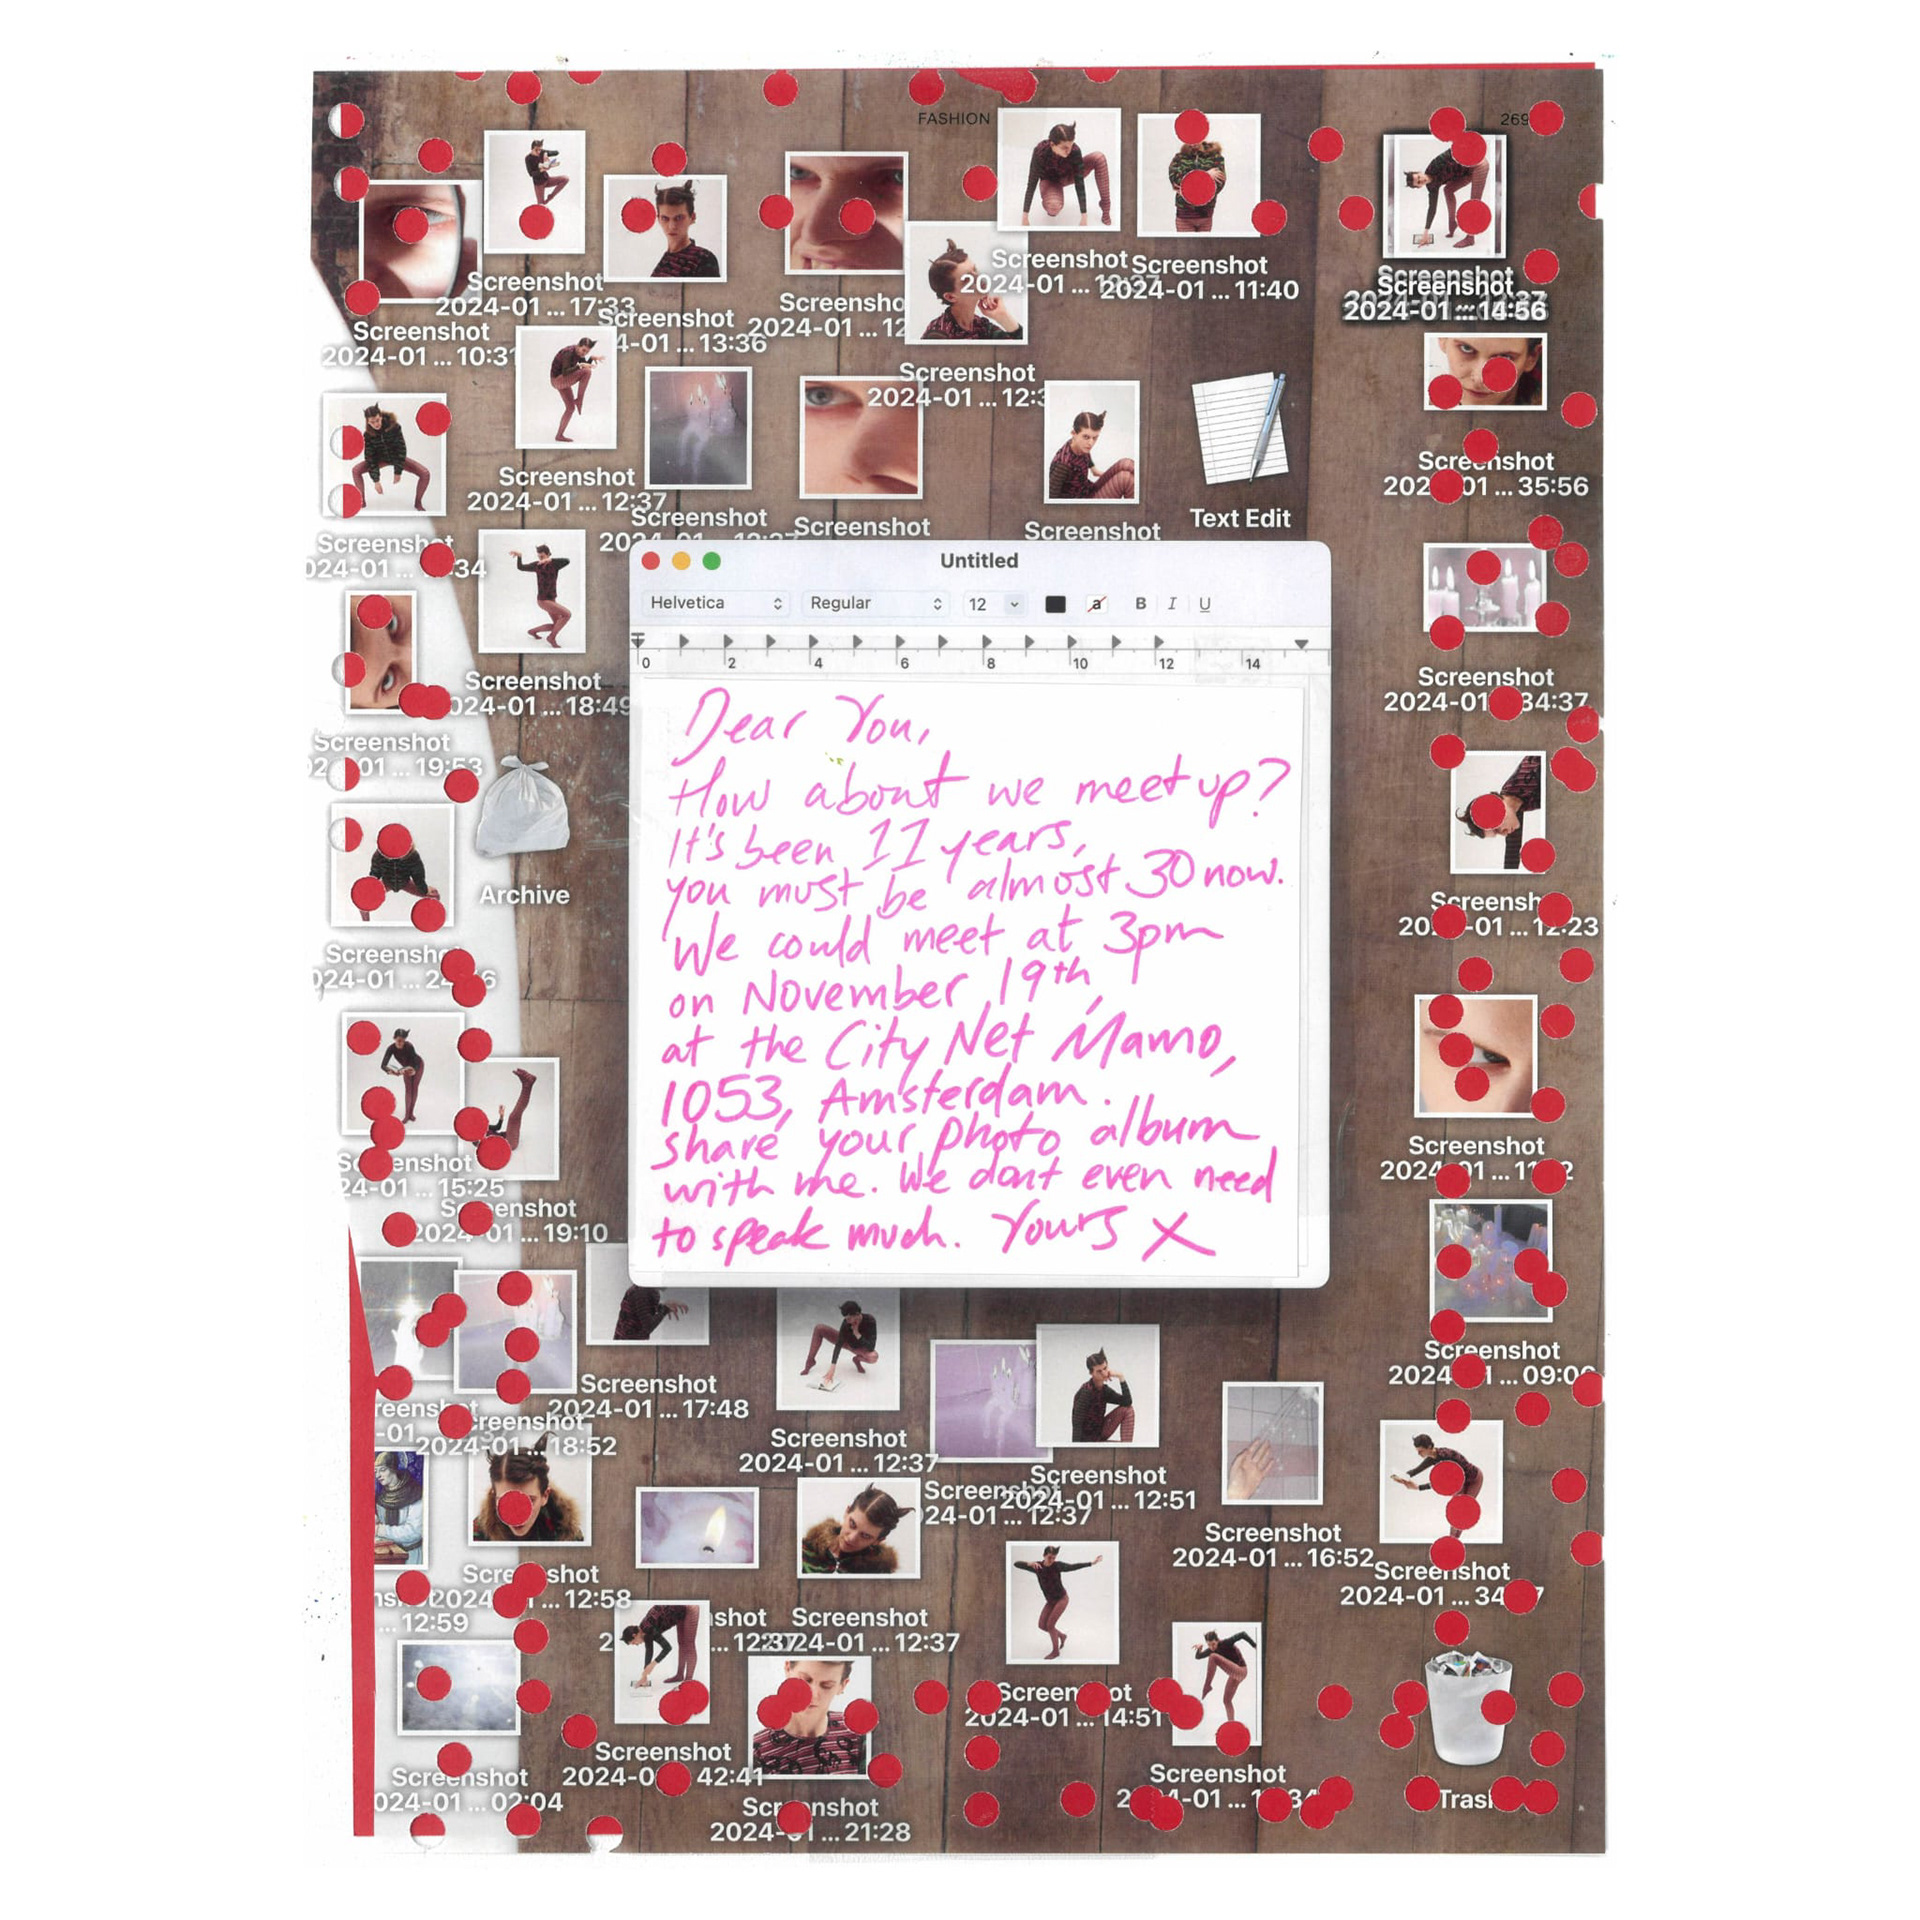 FASHION
269
Screenshot
2024-01 ... 17:33
Screenshot
2024-01 ... 10:31
Screenshot
4-01 ... 13:36
Screensho
2024-01 ... 12
Screenshot
2024-01 ...
Screenshot
2024-01 ... 11:40
Screenshot
2024-01 ... 14:56
Screenshot
2024-01 ... 12:3
Screenshot
2024-01 ... 12:37
Screenshot
Screenshot
Screenshot
Text Edit
Screenshot
01 ... 35:56
Screenshot
024-01 ... 34
Screenshot
024-01 ... 18:49
Screenshot
01 ... 19:53
Archive
Screensho
024-01 ...
Screenshot
24-01 ... 15:25
Screenshot
2024-01 ... 19:10
Untitled
Helvetica Regular 12 a B I U
0 2 4 6 8 10 12 14
Dear You,
How about we meet up?
It's been 11 years,
you must be almost 30 now.
We could meet at 3pm
on November 19th,
at the City Net Mamo,
1053, Amsterdam.
share your photo album
with me. We dont even need
to speak much. Yours X
Screenshot
2024-01 34:37
Screensh
-01 ... 12:23
Screenshot
2024-01 ...
Screenshot
2024- 1 ... 09:00
Screenshot
2024-01 ... 17:48
Screenshot
2024-01 ... 18:52
Screenshot
2024-01 ... 12:37
Screenshot
24-01 ... 12:37
Screenshot
2024-01 ... 12:51
Screenshot
2024-01 ... 16:52
Screenshot
2024-01 ... 34
Screenshot
2024 ... 12:58
... 12:59
Screenshot
2024-01 ... 12:37
Screenshot
2024-01 ... 14:51
Screenshot
2024-0 42:41
Screenshot
024-01 ... 02:04
Screenshot
2024-01 ... 21:28
Screenshot
4-01 ...
Trash